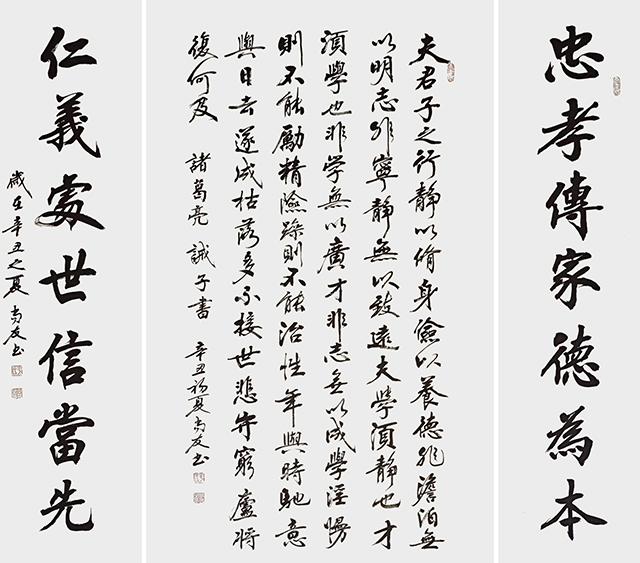 忠孝傳家德為本
夫君子之行靜以脩身儉以養德非澹泊無
以明志非寧靜無以致遠夫學須靜也才
須學也非学無以廣才非志無以成學淫慢
則不能勵精險躁則不能治性年與時馳意
與日去遂成枯落多不接世悲守窮廬將
復何及 諸葛亮 誡子書 辛丑初夏尚友书
仁義處世信當先
歲在辛丑之夏 尚友书